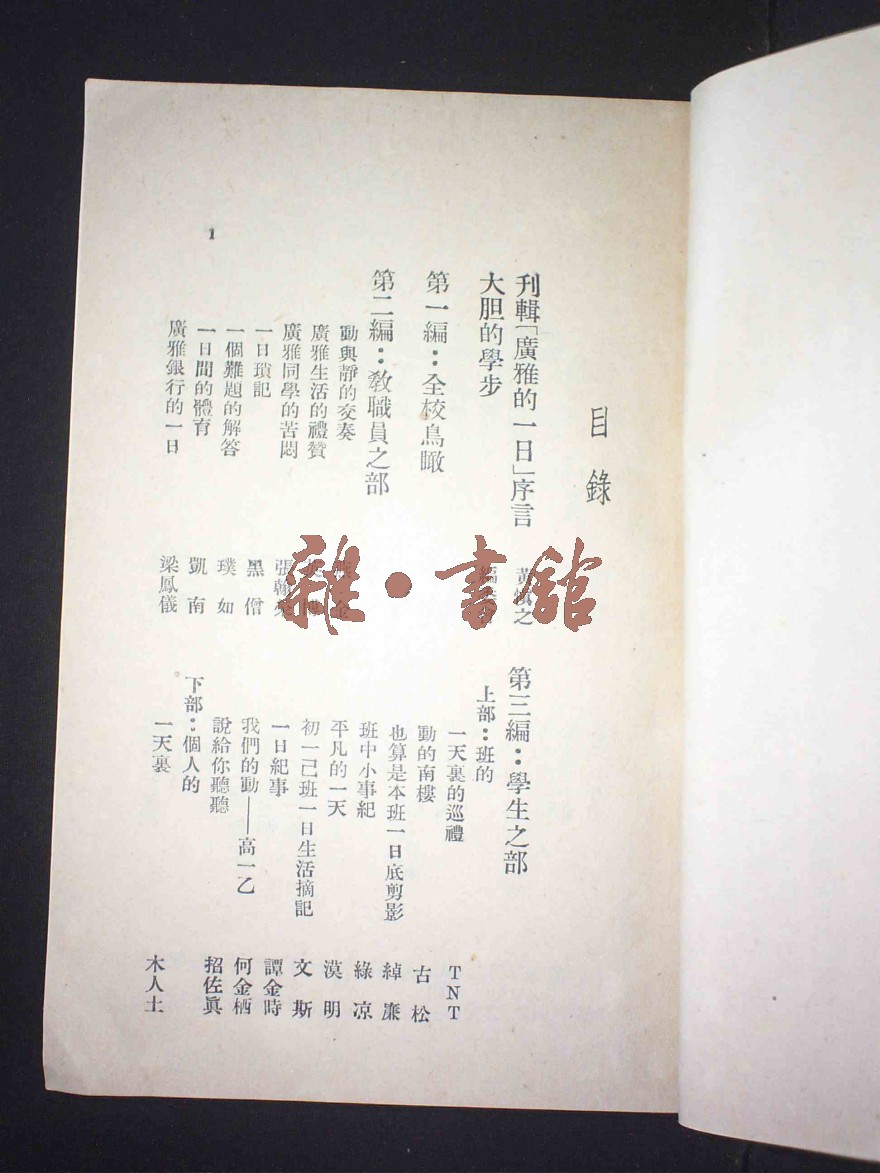 目錄
刊輯「廣雅的一日」序言 黃慎之
大胆的學步
第一編：全校鳥瞰
第二編：教職員之部
動與靜的交奏
廣雅生活的禮贊
廣雅同學的苦悶 張翰
一日瑣記 黑僧
一個難題的解答 璞如
一日間的體育 凱南
廣雅銀行的一日 梁鳳儀
第三編：學生之部
上部：班的
一天裏的巡禮 TNT
動的南樓 古松
也算是本班一日底剪影 綽廉
班中小事紀 綠凉
平凡的一天 漠明
初一己班一日生活摘記 文斯
一日紀事 譚金時
我們的動——高一乙 何金栖
說給你聽聽 招佐眞
下部：個人的
一天裏 木人土
1
雜·書館